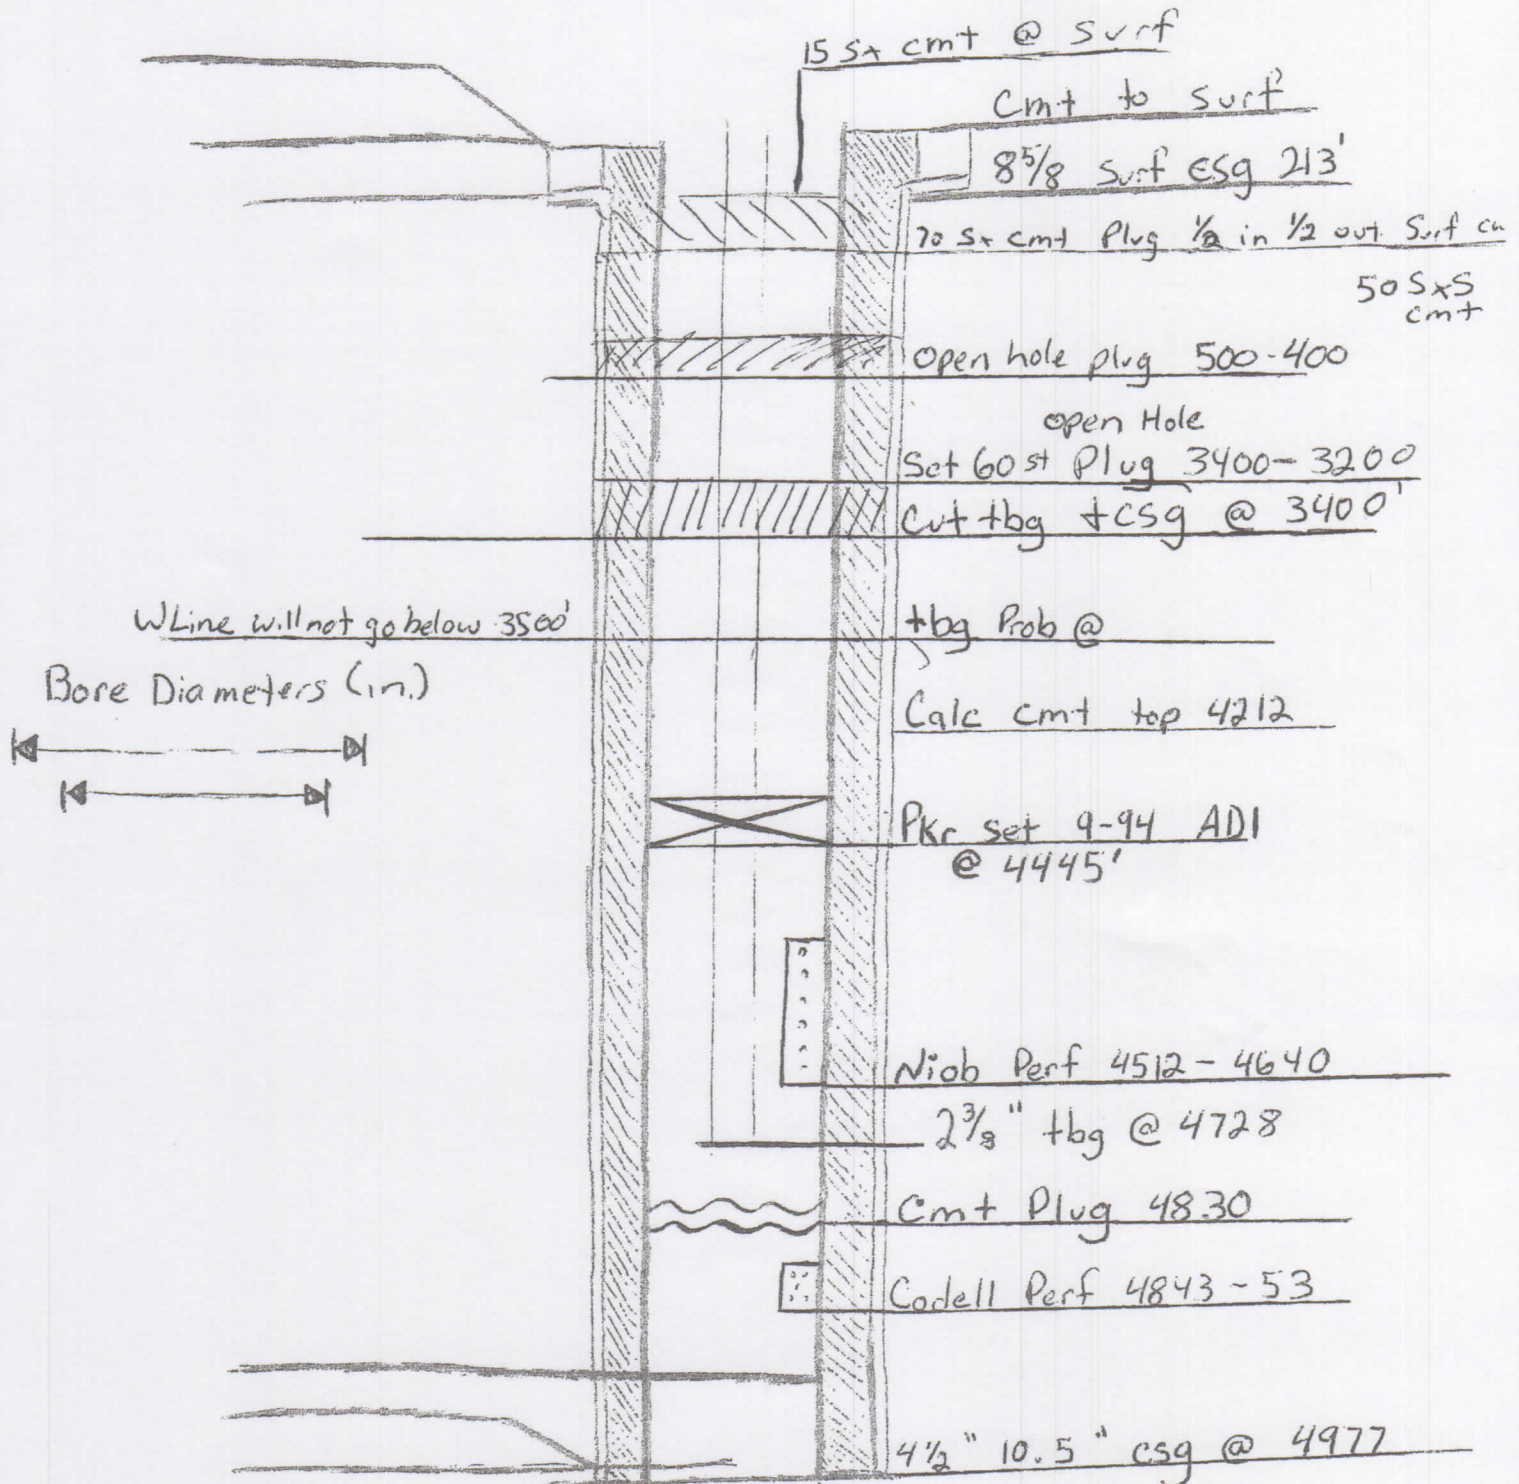 15 sx cmt @ surf
Cmt to surf
8 5/8 Surf csg 213'
70 sx cmt Plug 1/2 in 1/2 out Surf
50 Sxs
cmt
Open hole plug 500-400
open Hole
Set 60 st Plug 3400-3200
Cut tbg + csg @ 3400'
WLine will not go below 3500'
tbg Prob @
Bore Diameters (in.)
Calc cmt top 4212
Pkr set 9-94 ADI
@ 4445'
Niob Perf 4512-4640
2 3/8" tbg @ 4728
Cmt Plug 4830
Codell Perf 4843-53
4 1/2" 10.5" csg @ 4977